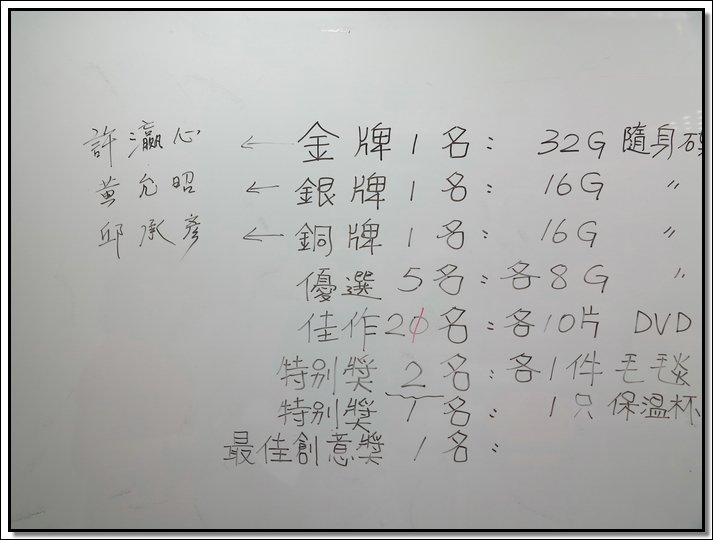 許瀛心 ← 金牌 1 名: 32G 隨身碟
黃允昭 ← 銀牌 1 名: 16G 〃
邱承彥 ← 銅牌 1 名: 16G 〃
優選 5 名: 各 8G 〃
佳作 20 名: 各 10 片 DVD
特別獎 2 名: 各 1 件 毛毯
特別獎 1 名: 1 只 保溫杯
最佳創意獎 1 名: